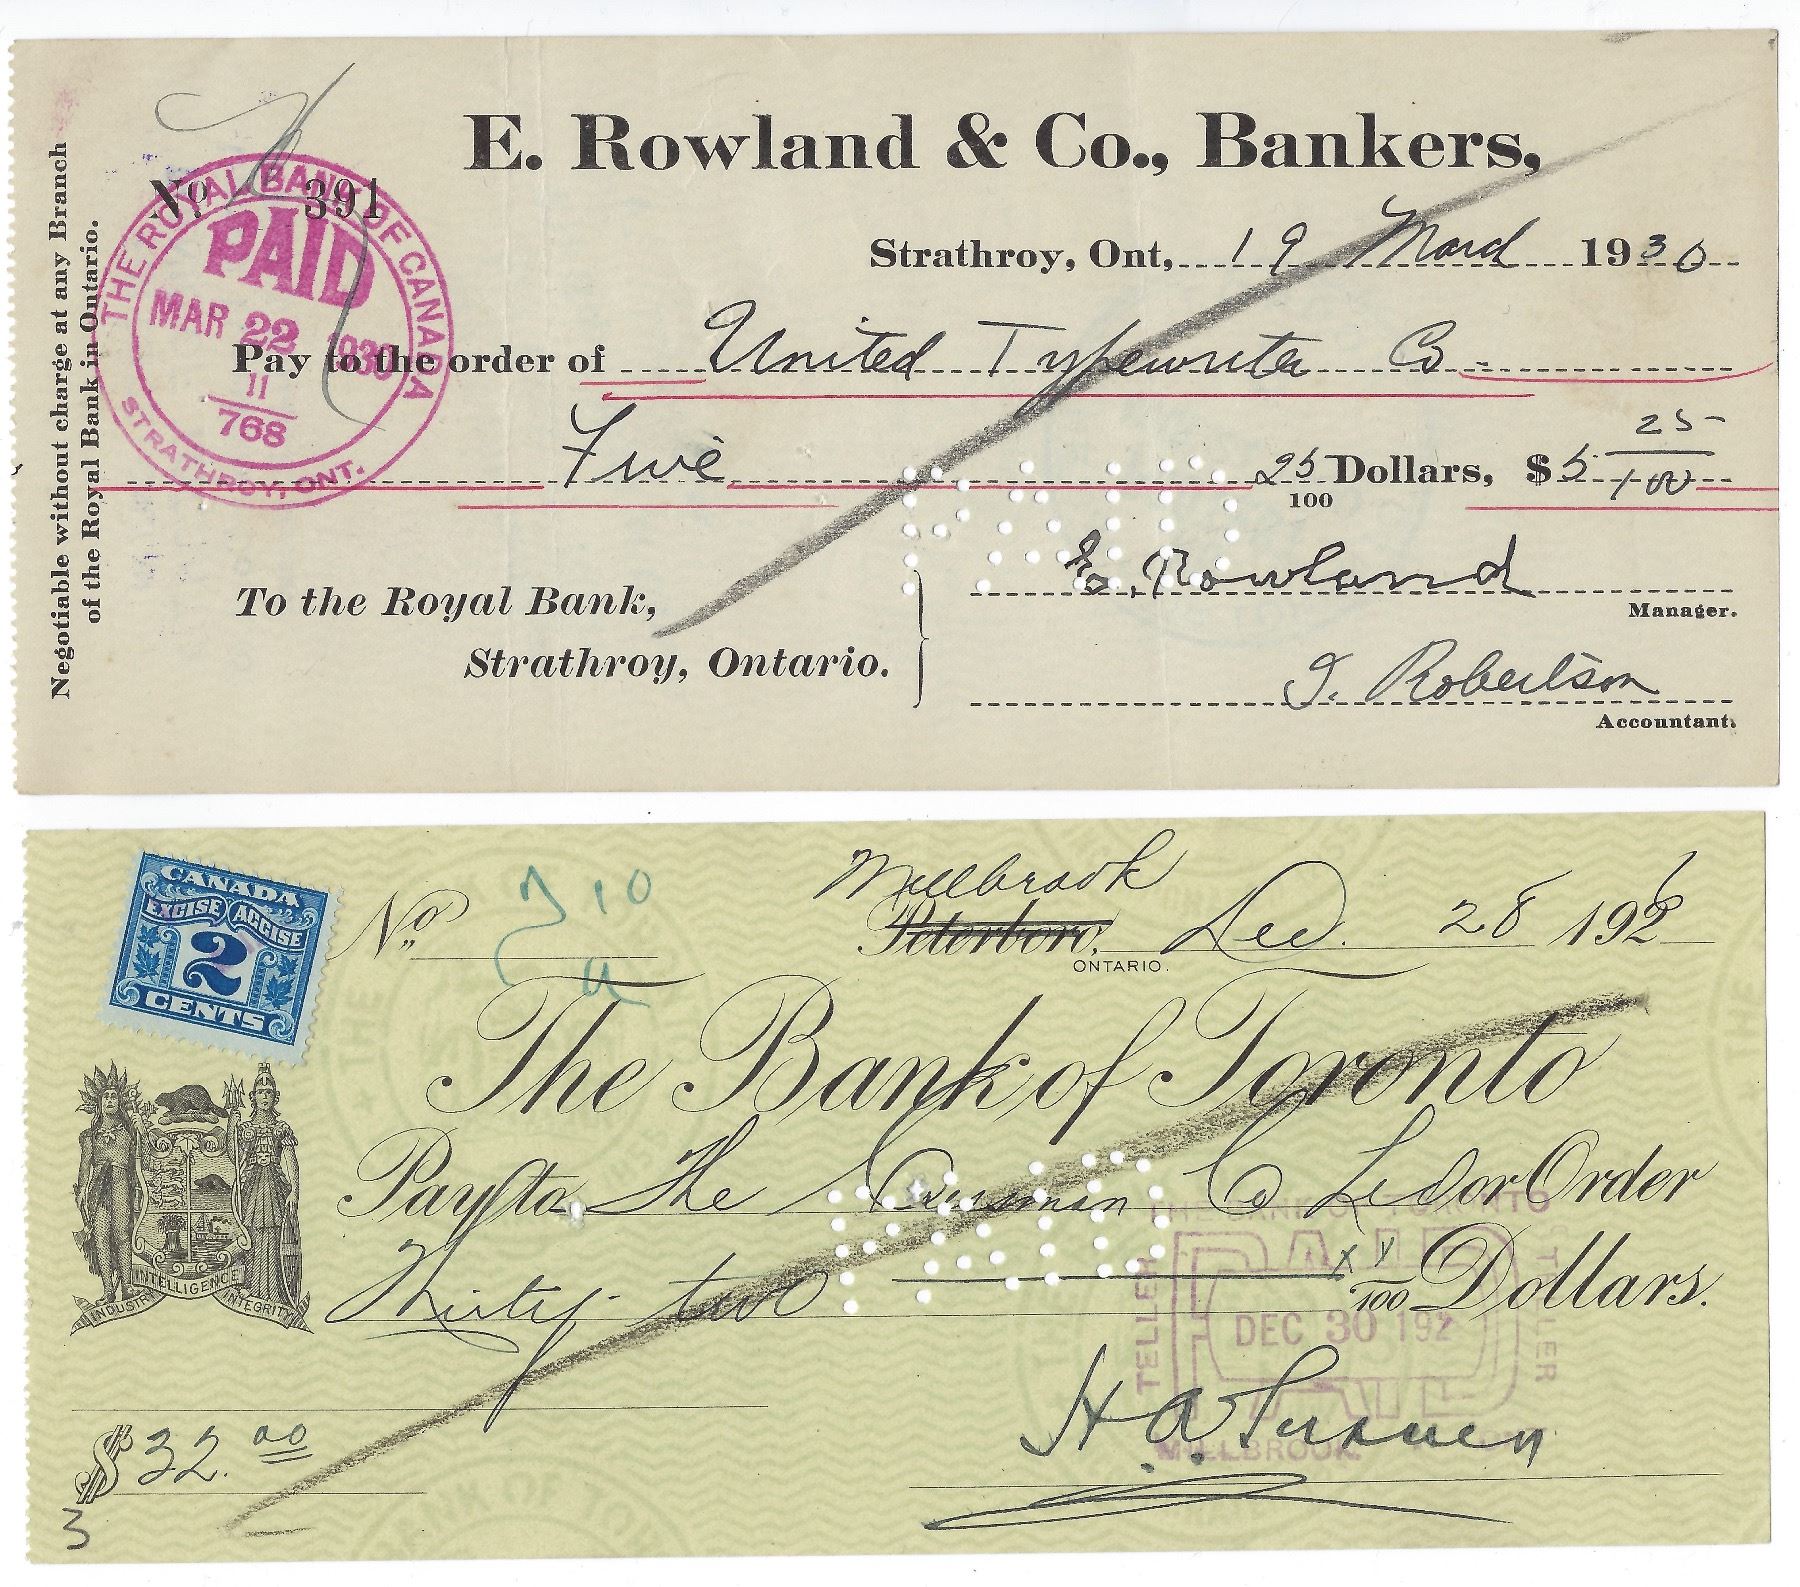 E. Rowland & Co., Bankers,
No. 391
Strathroy, Ont, 19 March 1930
Pay to the order of United Typewriter Co.
Five 25/100 Dollars, $5 25/100
To the Royal Bank,
Strathroy, Ontario.
E. Rowland
Manager.
J. Robertson
Accountant.
Negotiable without charge at any Branch
of the Royal Bank in Ontario.
THE ROYAL BANK OF CANADA
PAID
MAR 22 1930
11
768
STRATHROY, ONT.
CANADA
EXCISE ACCISE
2
CENTS
No.
Millbrook
Peterboro, Dec. 28 1926
ONTARIO.
The Bank of Toronto
Pay to The Co Ltd or Order
Thirty two xx/100 Dollars.
INDUSTRY INTELLIGENCE INTEGRITY
THE BANK OF TORONTO
PAID
TELLER TELLER
DEC 30 192
PAID
MILLBROOK.
$32.00
H. A.
3